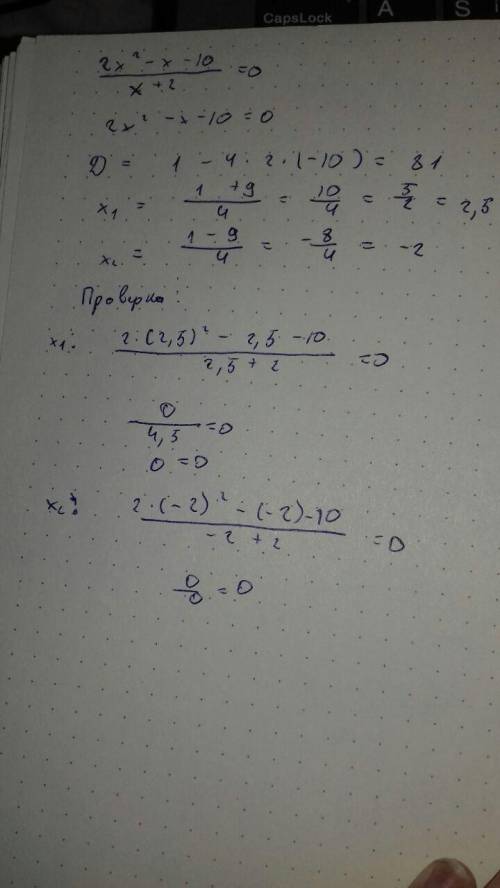 CapsLock A S
2x² - x - 10 / x + 2 = 0
2x² - x - 10 = 0
D = 1 - 4 · 2 · (-10) = 81
x₁ = 1 + 9 / 4 = 10 / 4 = 5 / 2 = 2,5
x₂ = 1 - 9 / 4 = - 8 / 4 = -2
Проверка:
x₁: 2 · (2,5)² - 2,5 - 10 / 2,5 + 2 = 0
0 / 4,5 = 0
0 = 0
x₂: 2 · (-2)² - (-2) - 10 / -2 + 2 = 0
0 / 0 = 0